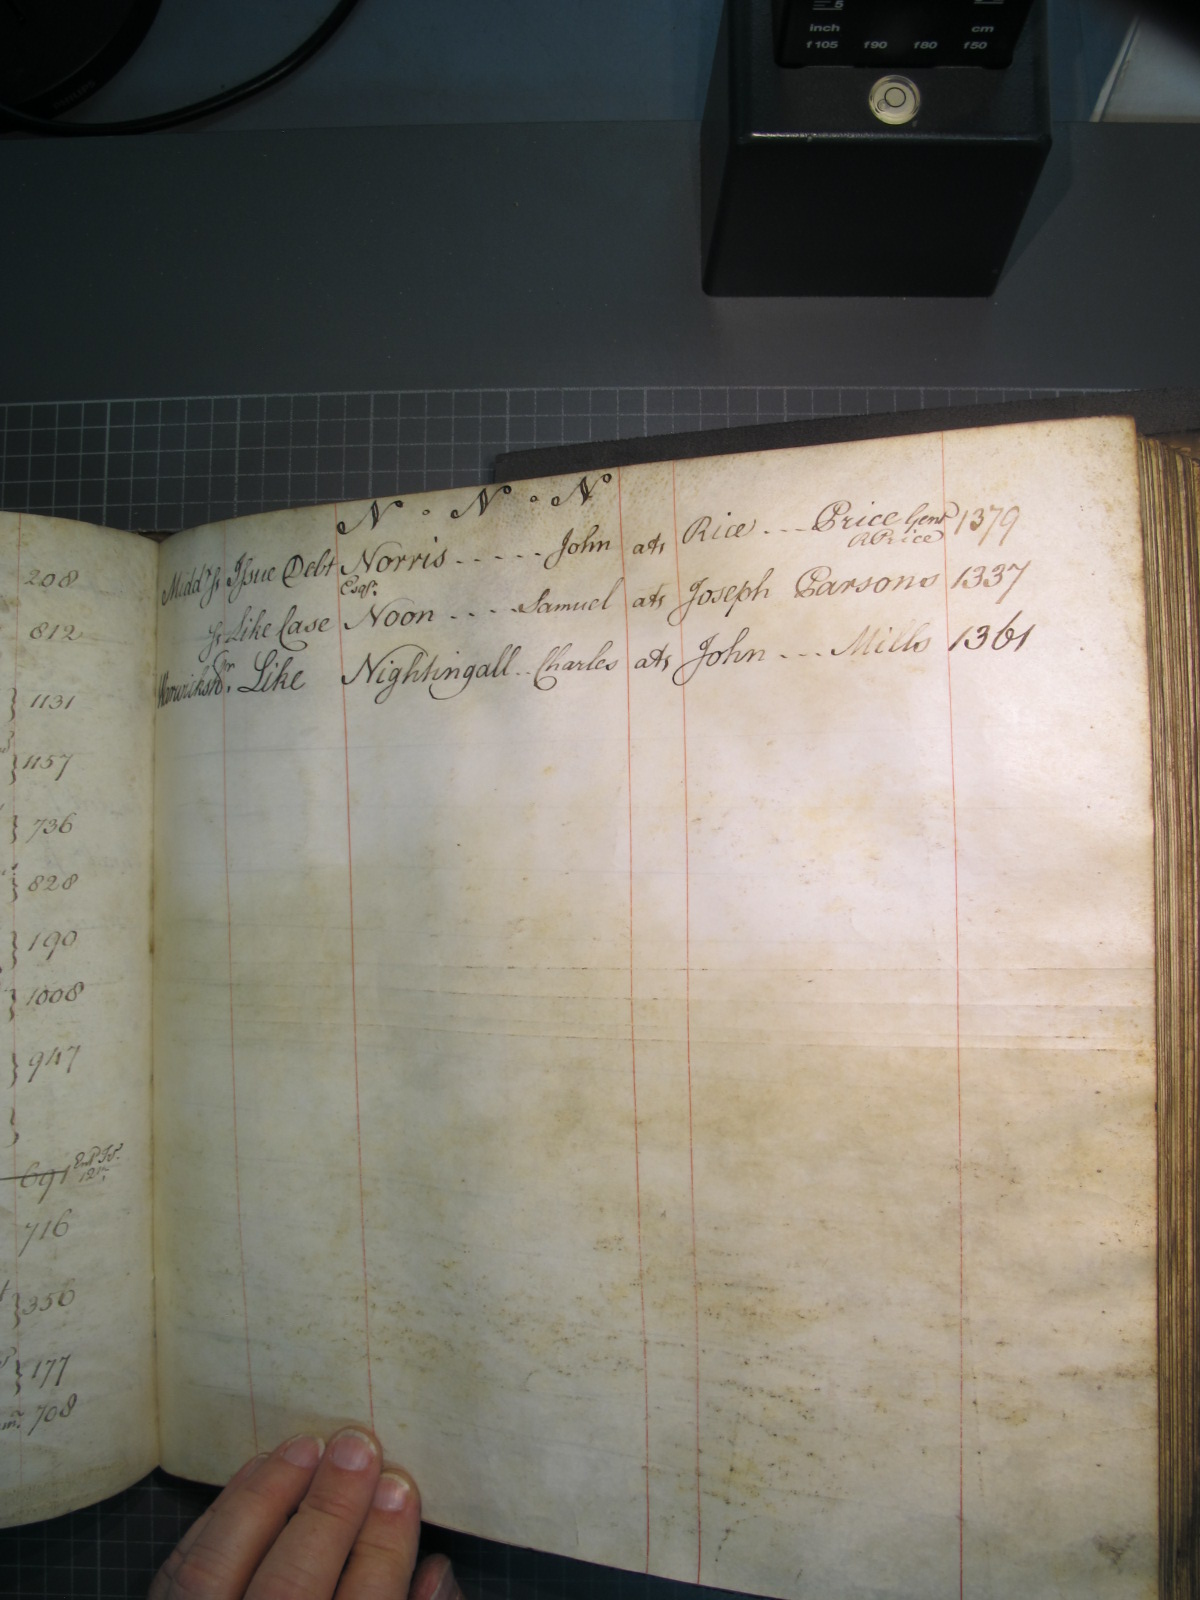 5
inch cm
f105 f90 f80 f50
PHILIPS
N o N o N o
Midd. ss Issue Debt Norris - - - - - John ats Rice - - - Price Gent 1379
Esqr. RPrice
ss Like Case Noon - - - - Samuel ats Joseph Parsons 1337
Warwicksh. Like Nightingall - - Charles ats John - - - Mills 1361
208
812
1131
1157
736
828
190
1008
947
691
12
716
356
177
708